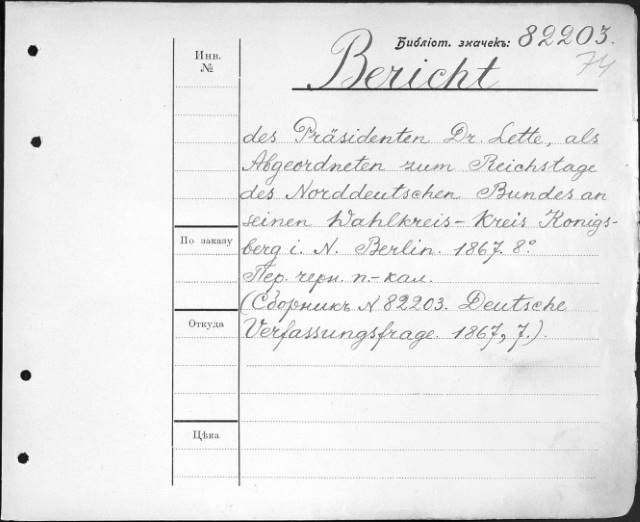 Библіот. значекъ: 82203.
74
Инв.
№
Bericht
des Präsidenten Dr. Lette, als
Abgeordneten zum Reichstage
des Norddeutschen Bundes an
seinen Wahlkreis - Kreis Königs-
berg i. N. Berlin. 1867. 8°
По заказу
Пер. черн. п-кал.
(Сборникъ N. 82203. Deutsche
Verfassungsfrage. 1867, 7.).
Откуда
Цѣна